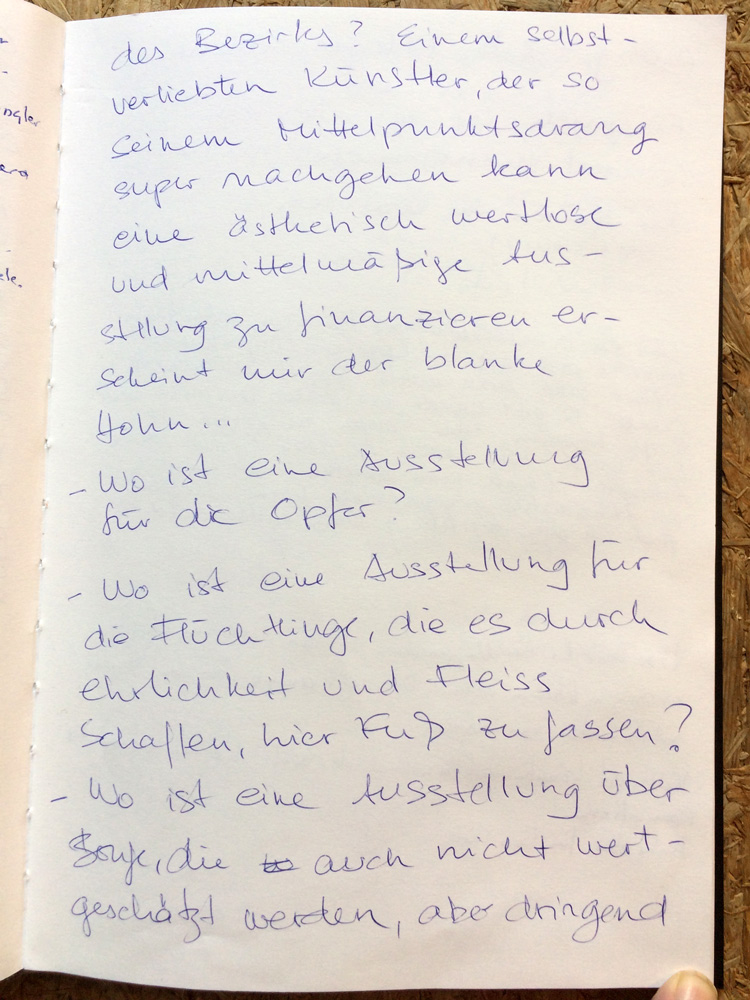 des Bezirks? Einem selbst-
verliebten Künstler, der so
seinem Mittelpunktsdrang
super nachgehen kann
eine ästhetisch wertlose
und mittelmäßige Aus-
stllung zu finanzieren er-
scheint mir der blanke
Hohn...
- Wo ist eine Ausstellung
für die Opfer?
- Wo ist eine Ausstellung für
die Flüchtlinge, die es durch
ehrlichkeit und Fleiss
schaffen, hier Fuß zu fassen?
- Wo ist eine Ausstellung über
die auch nicht wert-
geschätzt werden, aber dringend